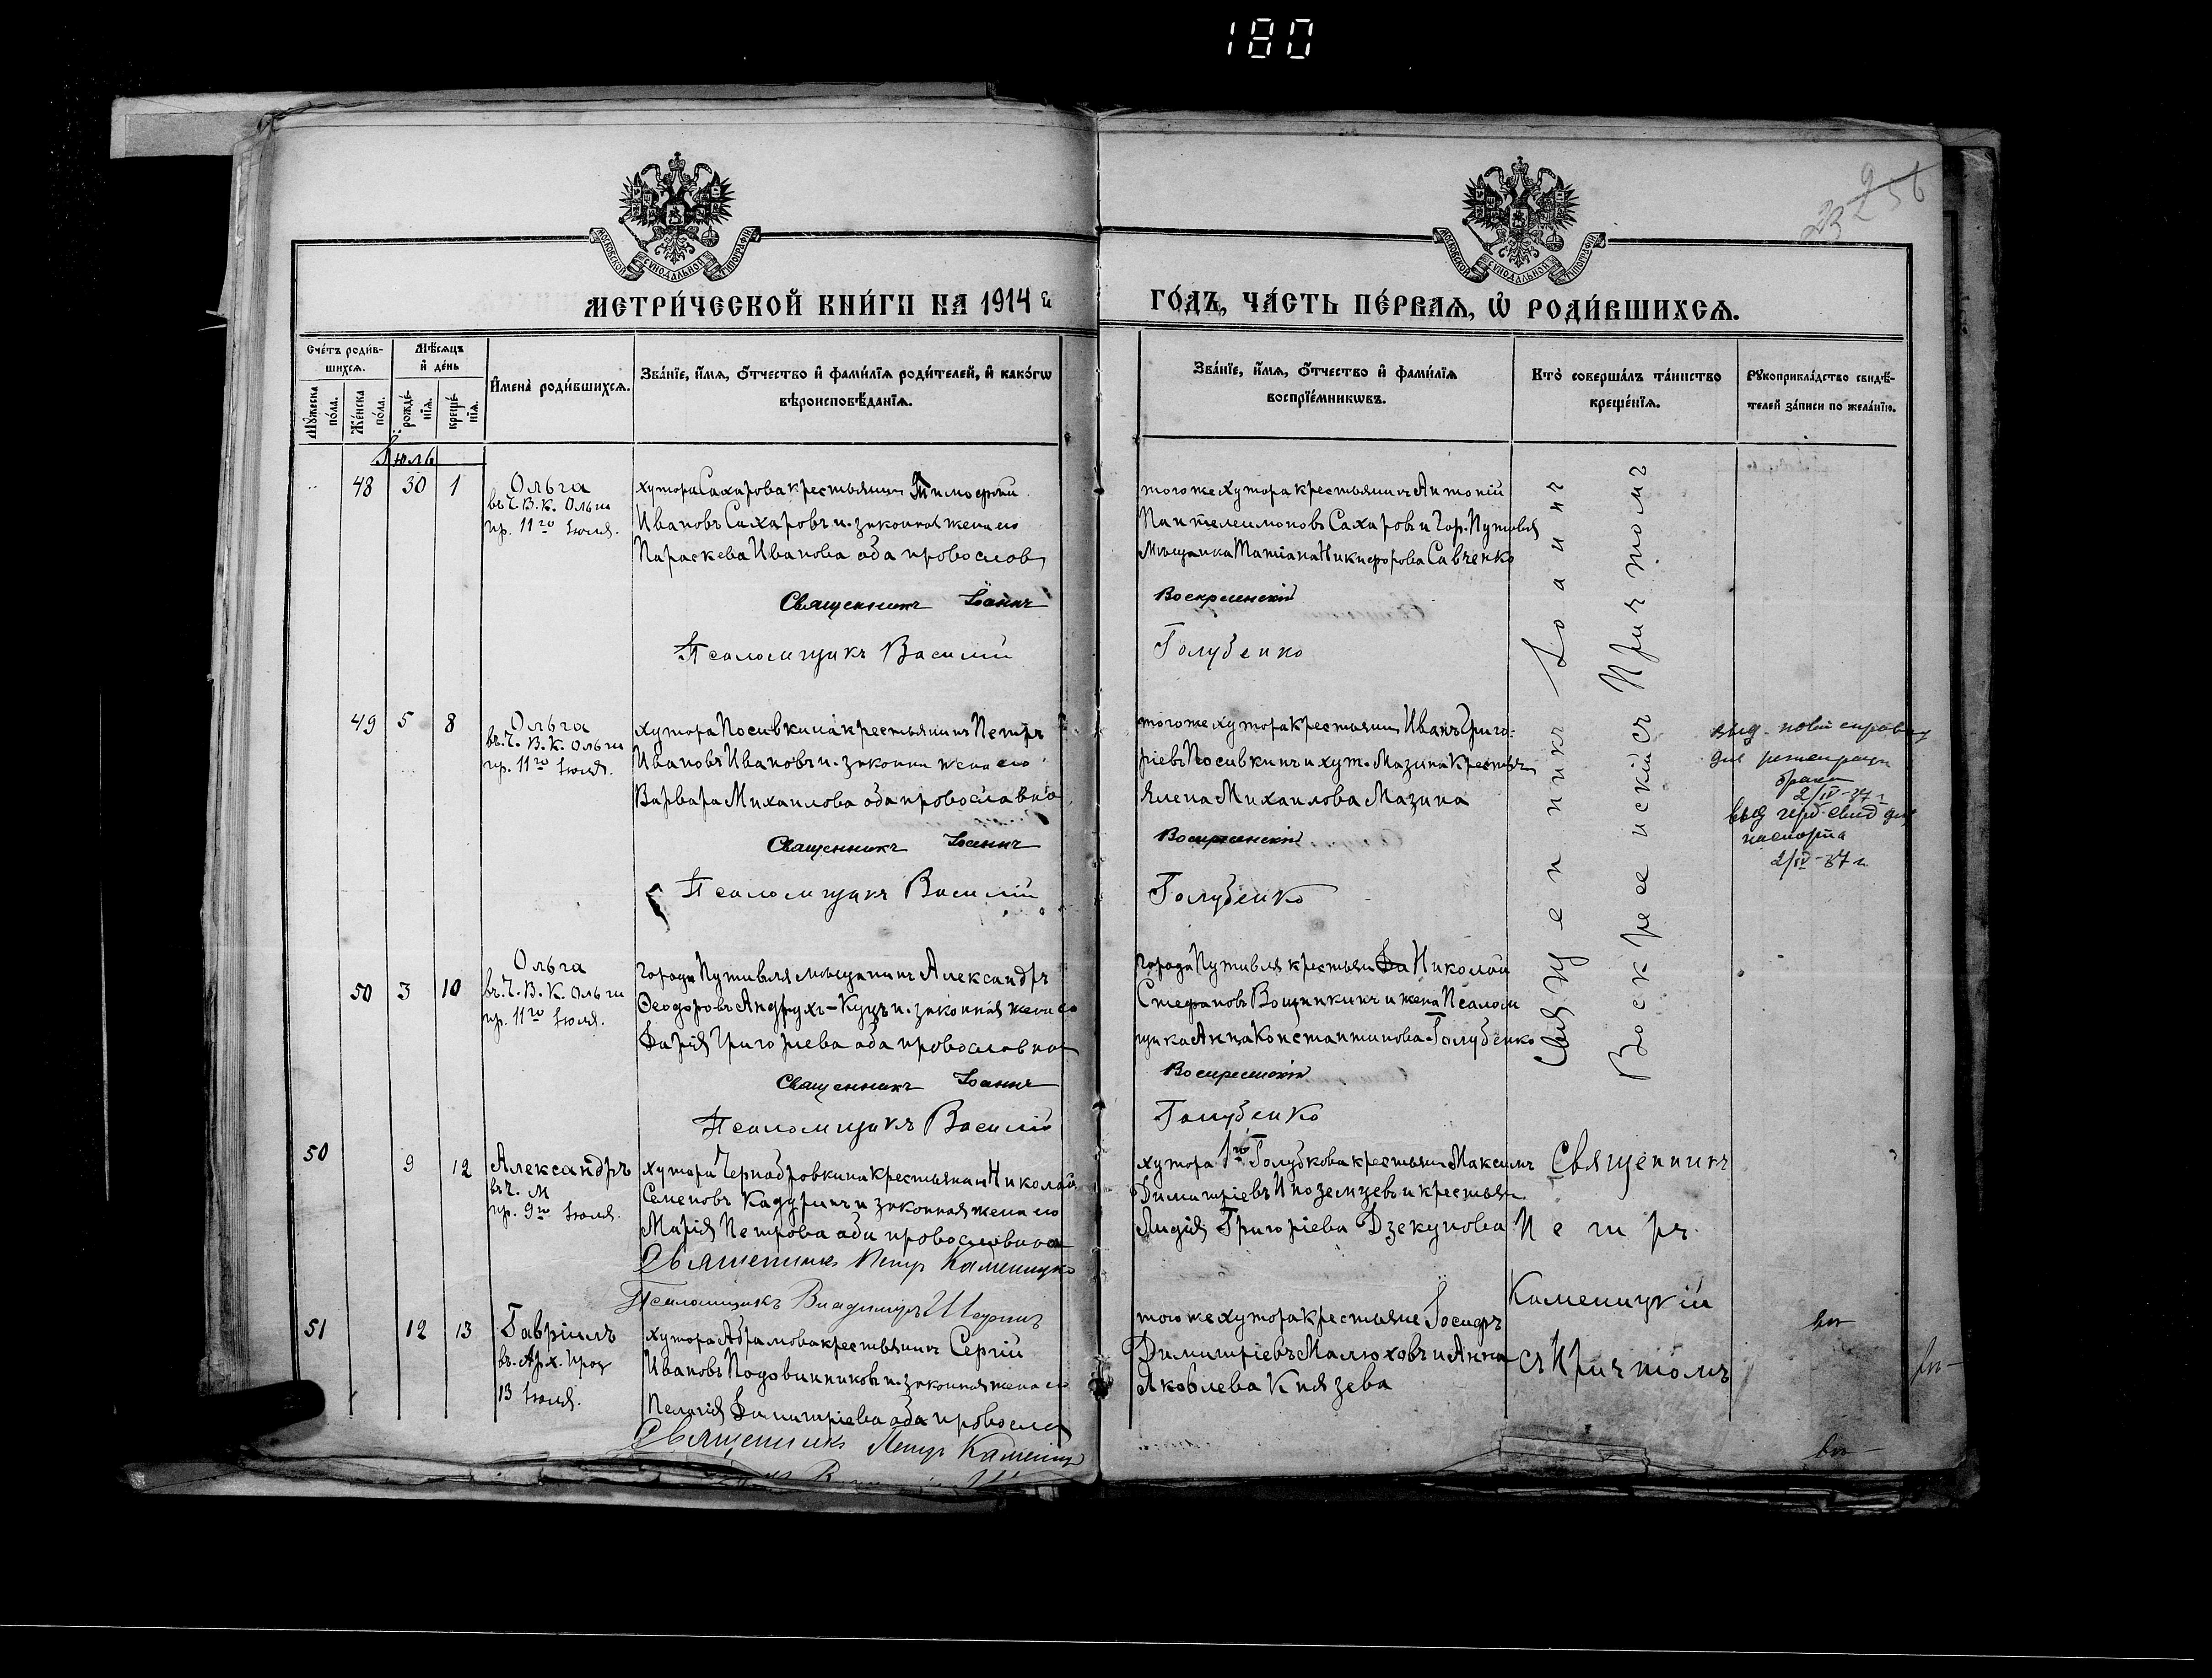 180
256
23
МОСКОВСКОЙ СУНОДАЛЬНОЙ ТИПОГРАФІИ
МОСКОВСКОЙ СУНОДАЛЬНОЙ ТИПОГРАФІИ
МЕТРИ́ЧЕСКОЙ КНИ́ГИ НА 1914 й
ГО́ДЪ, ЧА́СТЬ ПЕ́РВАѦ, Ѡ҆ РОДИ́ВШИХСѦ.
Сче́тъ роди́в-
шихсѧ.
Мꙋжеска
по́ла.
Же́нска
по́ла.
Мѣ́сѧцъ
и҆ де́нь
рожде́-
нїѧ.
креще́-
нїѧ.
И҆мена̀ роди́вшихсѧ.
Зва́нїе, и҆́мѧ, ѻ҆́тчество и҆ фами́лїѧ роди́телей, и҆ како́гѡ
вѣроисповѣ́данїѧ.
Зва́нїе, и҆́мѧ, ѻ҆́тчество и҆ фами́лїѧ
воспрїе́мникѡвъ.
Кто̀ соверша́лъ та́инство
креще́нїѧ.
Рꙋкоприкла́дство свидѣ́-
телей за́писи по жела́нїю.
Іюль
48 30 1
Ольга
въ ч. В. К. Ольги
пр. 11го Іюля.
хутора Сахарова крестьянин Тимофей
Ивановъ Сахаровъ и законная жена его
Параскева Иванова оба провослов
Священникъ Іоаннъ
Псаломщикъ Василій
того же хутора крестьянинъ Антоній
Пантелеимоновъ Сахаровъ и Гор. Путивля
Мѣщанка Татіана Никифорова Савченко
Воскресенскій
Голубенко
Священникъ Іоаннъ
Воскресенскій с Причтомъ
49 5 8
Ольга
въ ч. В. К. Ольги
пр. 11го Іюля.
хутора Посивкина крестьянинъ Петръ
Ивановъ Ивановъ и законная жена его
Варвара Михаилова оба провославно
Священникъ Іоаннъ
Псаломщикъ Василій
того же хутора крестьянин Иванъ Григо-
ріевъ Посивкинъ и хут. Мазина крестьян
Елена Михаилова Мазина
Воскресенскій
Голубенко
выд.
для регистрации
брака
2/IV-37 г.
выд
паспорта
2/IV-37 г.
50 3 10
Ольга
въ ч. В. К. Ольги
пр. 11го Іюля.
города Путивля мѣщанинъ Александръ
Ѳеодоровъ Андрухъ-Куцъ и законная жена его
Дарія Григоріева оба провославной
Священникъ Іоаннъ
Псаломщикъ Василій
города Путивля крестьян Николай
Стефановъ Вощинкинъ и жена Псалом
щика Анна Константинова Голубенко
Воскресенскій
Голубенко
50 9 12
Александръ
въ ч. М
пр. 9го Іюля.
хутора Чернобровкина крестьянинъ Николай
Семеновъ Кадуринъ и законная жена его
Марія Петрова оба провославной
Священникъ Петр Каменицкі
Псаломщикъ Владимиръ
хутора 1го Голубкова крестьян Максимъ
Димитріевъ Иноземцевъ и крестьян
Лидія Григоріева Дзекунова
Священникъ
Петръ
Каменицкій
съ Причтомъ
51 12 13
Гавріилъ
въ. Арх. праз
13 Іюля.
хутора Абрамова крестьянинъ Сергій
Ивановъ Подовинниковъ и законная жена его
Пелагія Димитріева оба провосла
Священникъ Петръ Камениц
того же хутора крестьяне Іосифъ
Димитріевъ Малюховъ и Анна
Яковлева Князева